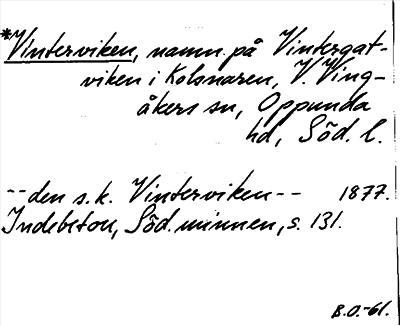 *Vinterviken, namn på Vintergat-
viken i Kolsnaren, V. Ving-
åkers sn, Oppunda
hd, Söd. l.
--den s.k. Vinterviken-- 1877.
Indebetou, Söd. minnen, s. 131.
B.O.-61.